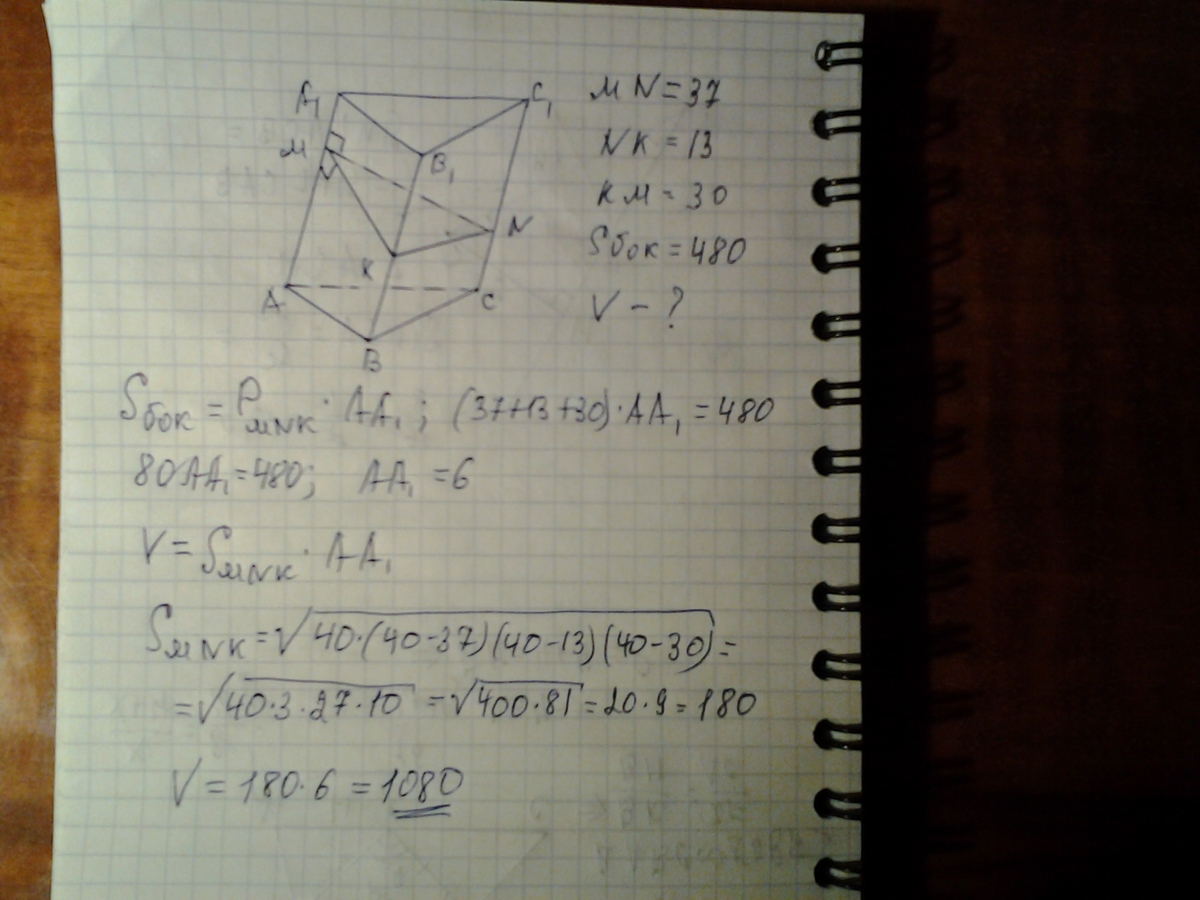 A₁ C₁
M B₁
N
K
A C
B
MN=37
NK=13
KM=30
Sбок=480
V-?
Sбок=P_MNK·AA₁; (37+13+30)·AA₁=480
80AA₁=480; AA₁=6
V=S_MNK·AA₁
S_MNK=√40·(40-37)(40-13)(40-30)=
=√40·3·27·10=√400·81=20·9=180
V=180·6=1080